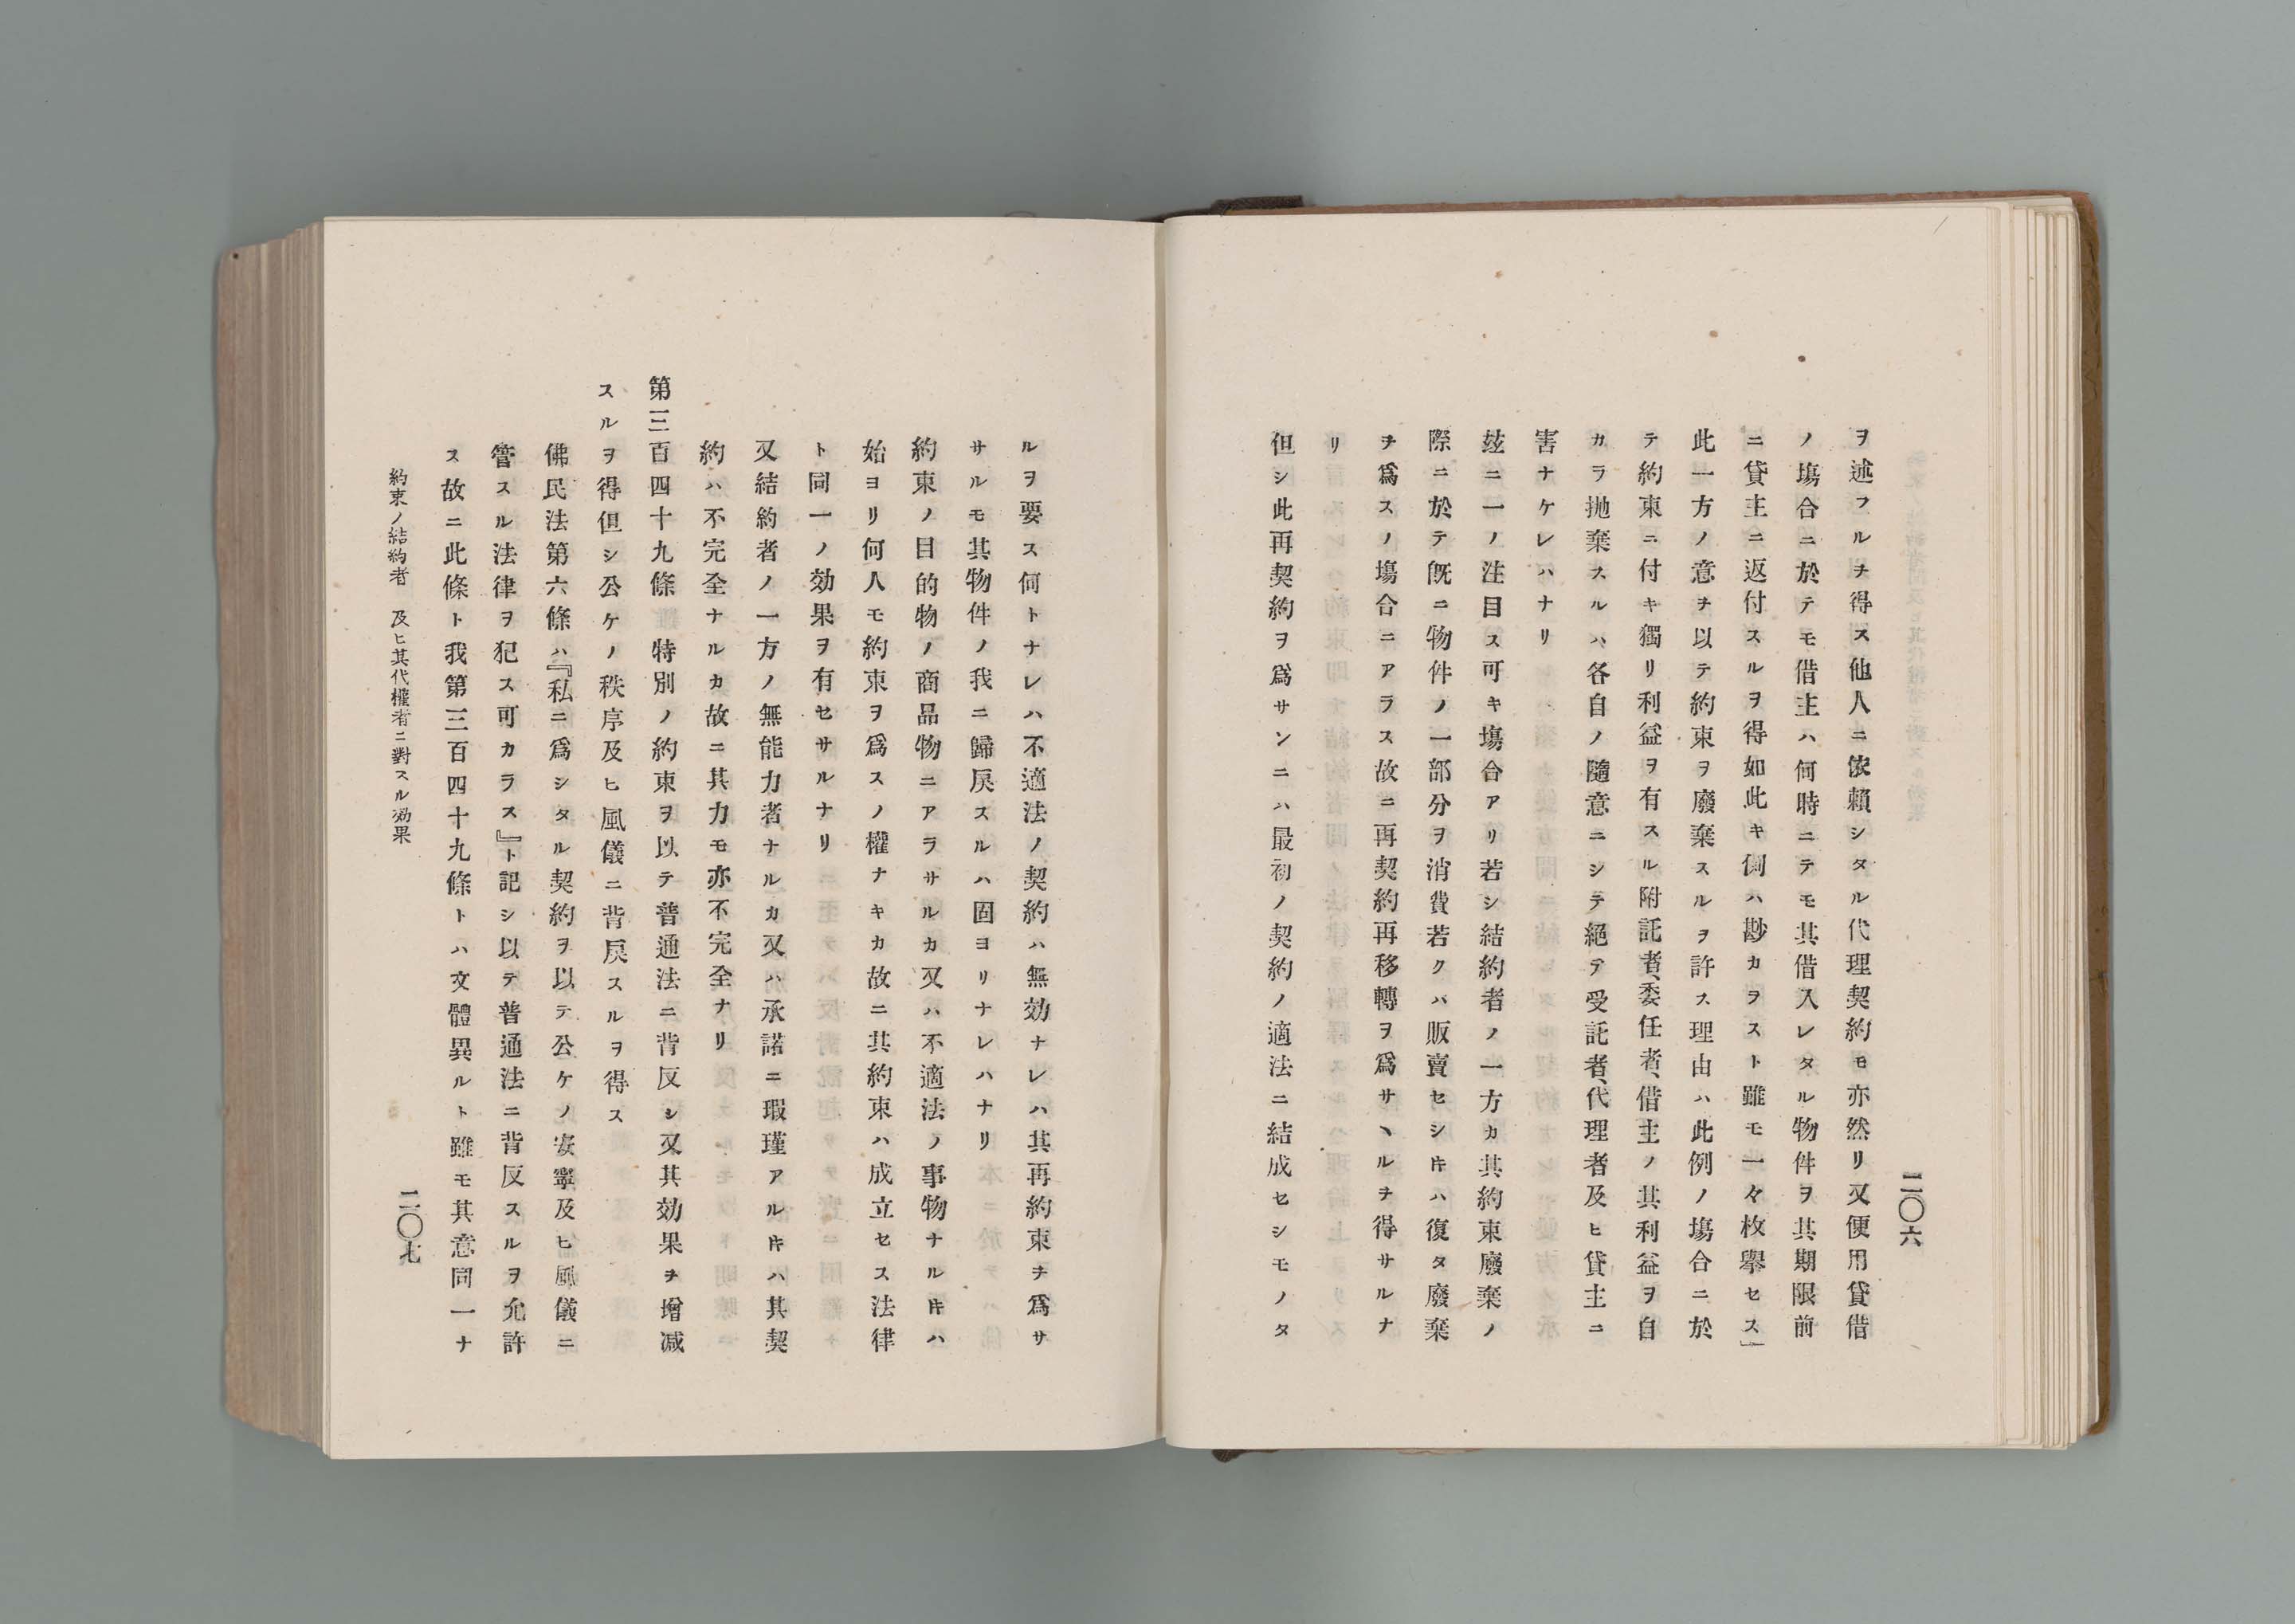 二〇六
ヲ述フルヲ得ス他人ニ依賴シタル代理契約モ亦然リ又便用貸借
ノ塲合ニ於テモ借主ハ何時ニテモ其借入レタル物件ヲ其期限前
ニ貸主ニ返付スルヲ得如此キ例ハ尠カラスト雖モ一々枚擧セス」
此一方ノ意ヲ以テ約束ヲ廢棄スルヲ許ス理由ハ此例ノ塲合ニ於
テ約束ニ付キ獨リ利益ヲ有スル附託者、委任者、借主ノ其利益ヲ自
カラ抛棄スルハ各自ノ隨意ニシテ絕テ受託者、代理者及ヒ貸主ニ
害ナケレハナリ
玆ニ一ノ注目ス可キ塲合アリ若シ結約者ノ一方カ其約束廢棄ノ
際ニ於テ旣ニ物件ノ一部分ヲ消費若クバ販賣セシ𪜈ハ復タ廢棄
ヲ爲スノ塲合ニアラス故ニ再契約再移轉ヲ爲サヽルヲ得サルナ
リ
但シ此再契約ヲ爲サンニハ最初ノ契約ノ適法ニ結成セシモノタ
ルヲ要ス何トナレハ不適法ノ契約ハ無効ナレハ其再約束ヲ爲サ
サルモ其物件ノ我ニ歸戻スルハ固ヨリナレハナリ
約束ノ目的物ノ商品物ニアラサルカ又ハ不適法ノ事物ナル𪜈ハ
始ヨリ何人モ約束ヲ爲スノ權ナキカ故ニ其約束ハ成立セス法律
ト同一ノ効果ヲ有セサルナリ
又結約者ノ一方ノ無能力者ナルカ又ハ承諾ニ瑕瑾アル𪜈ハ其契
約ハ不完全ナルカ故ニ其力モ亦不完全ナリ
第三百四十九條 特別ノ約束ヲ以テ普通法ニ背反シ又其効果ヲ增减
スルヲ得但シ公ケノ秩序及ヒ風儀ニ背戻スルヲ得ス
佛民法第六條ハ『私ニ爲シタル契約ヲ以テ公ケノ安寧及ヒ風儀ニ
管スル法律ヲ犯ス可カラス』ト記シ以テ普通法ニ背反スルヲ允許
ス故ニ此條ト我第三百四十九條トハ文體異ルト雖モ其意同一ナ
約束ノ結約者 及ヒ其代權者ニ對スル効果
二〇七